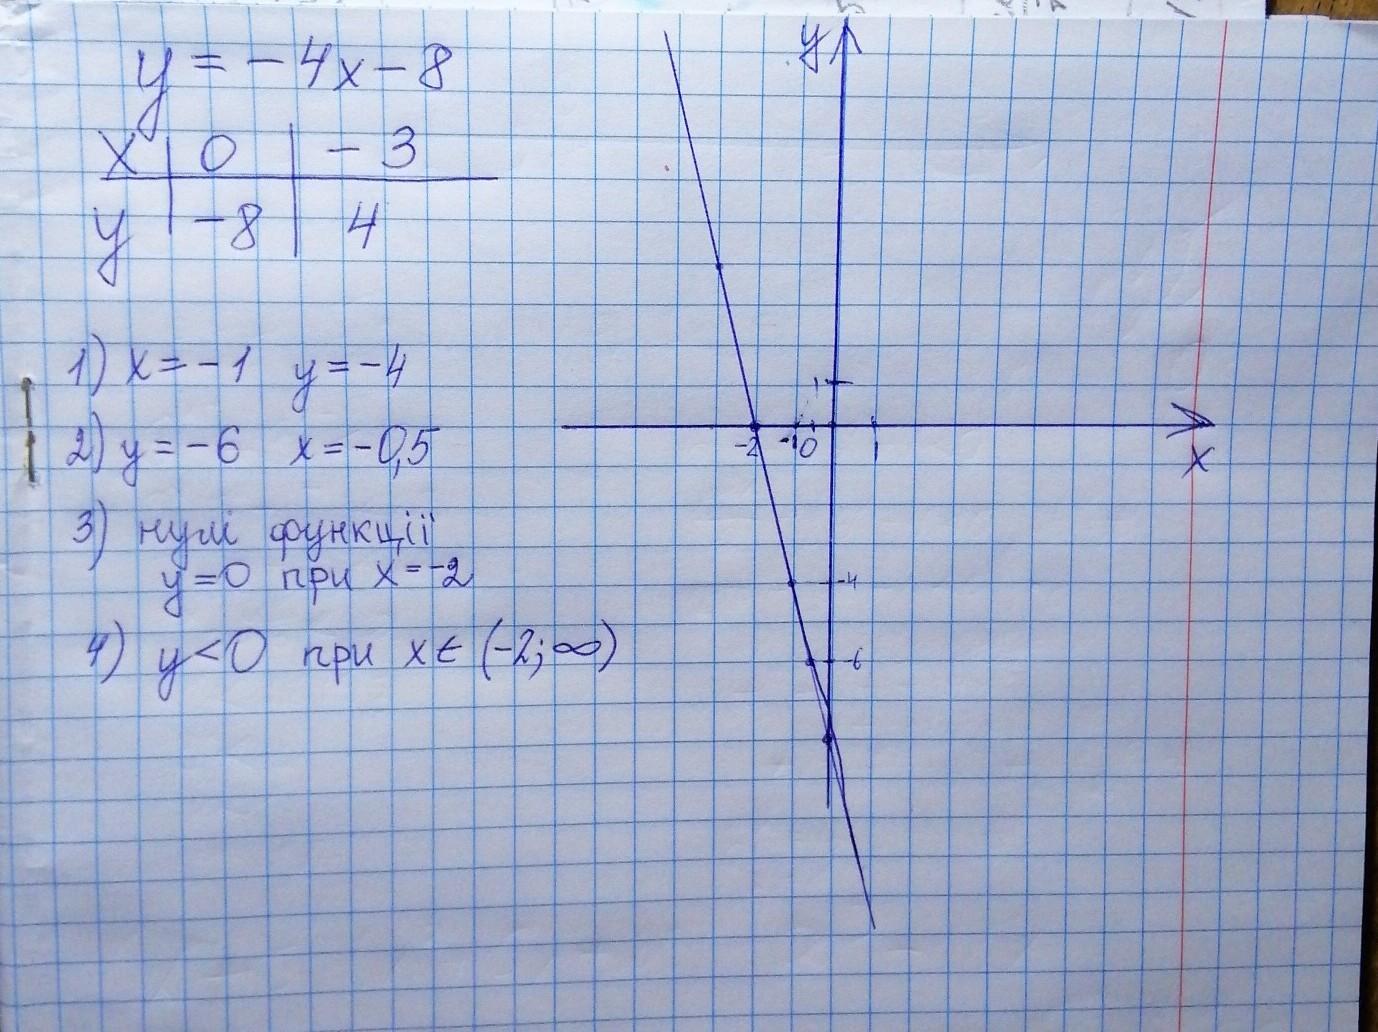 y = -4x-8
x 0 -3
y -8 4
1) x=-1 y=-4
2) y=-6 x=-0,5
3) нулі функції
y=0 при x=-2
4) y<0 при x∈(-2;∞)
y
1
-2 -1 0 1
x
-4
-6